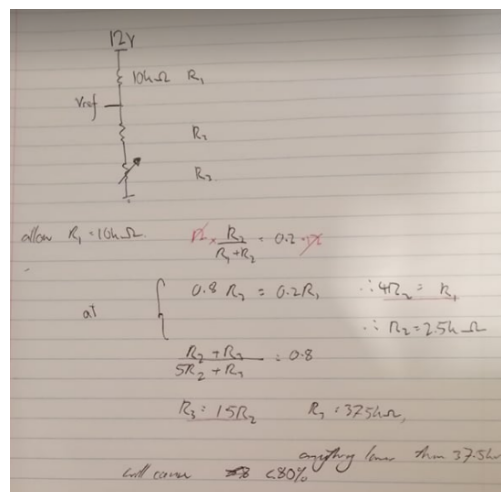 12V
10kΩ R₁
Vref
R₂
R₃
allow R₁ = 10kΩ. 12 × R₂ / (R₁+R₂) = 0.2 · 12
at { 0.8 R₂ = 0.2R₁ ∴ 4R₂ = R₁
∴ R₂ = 2.5kΩ
(R₂ + R₃) / (5R₂ + R₃) = 0.8
R₃ = 15R₂ R₃ = 37.5kΩ,
anything lower than 37.5k
will cause <80%